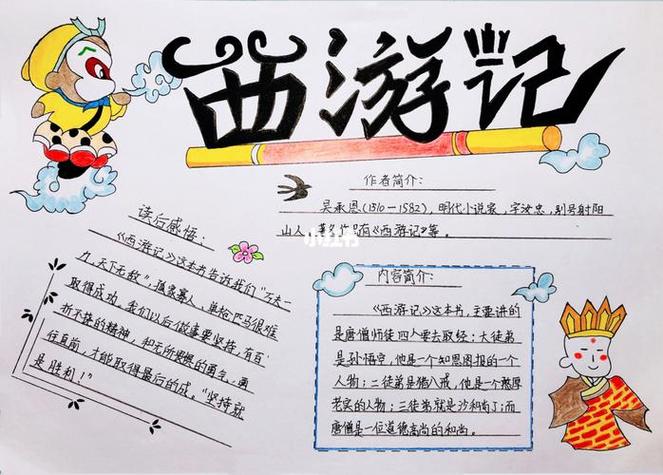 西游记
作者简介：
吴承恩(1510－1582)，明代小说家，字汝忠，别号射阳
山人，著名作品有《西游记》等。
小红书
读后感悟：
《西游记》这本书告诉我们"万夫一
力，天下无敌"，孤家寡人，单枪匹马很难
取得成功。我们以后做事要坚持，有百
折不挠的精神，和无所畏惧的勇气，勇
往直前，才能取得最后的成。"坚持就
是胜利！"
内容简介：
《西游记》这本书，主要讲的
是唐僧师徒四人要去取经：大徒弟
是孙悟空，他是一个知恩图报的一个
人物；二徒弟是猪八戒，他是一个憨厚
老实的人物；三徒弟就是沙和尚了；而
唐僧是一位道德高尚的和尚。